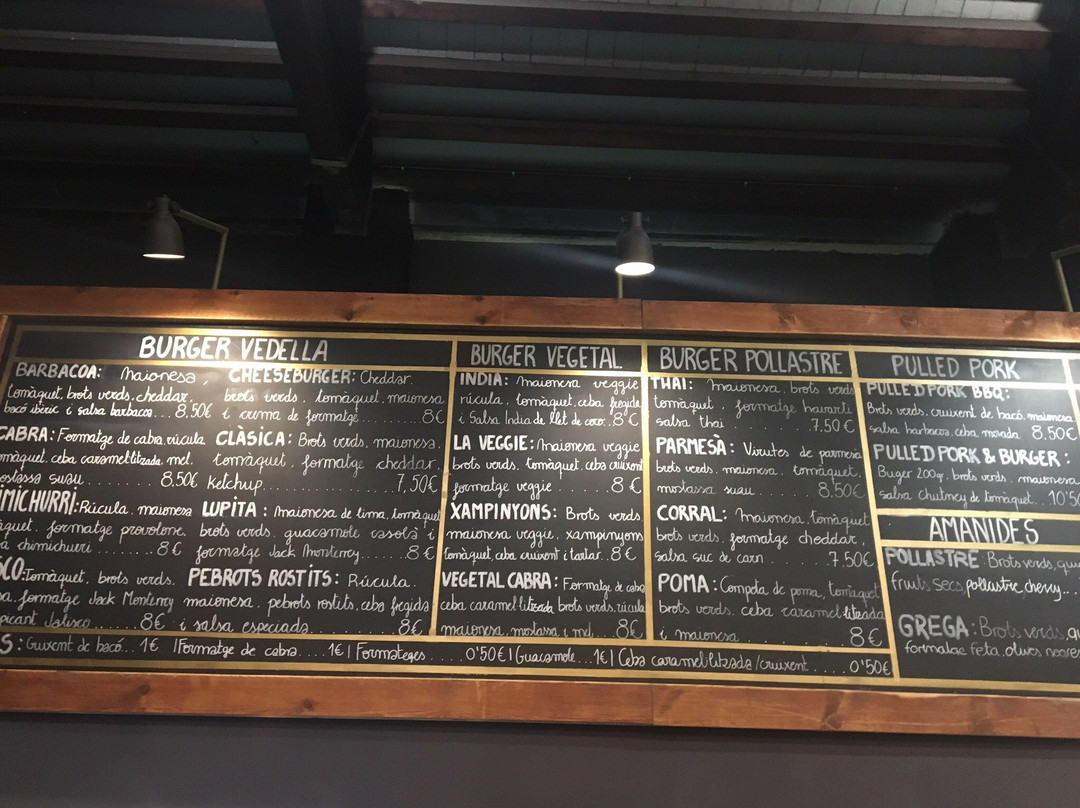 BURGER VEDELLA
BARBACOA: Maionesa,
tomàquet, brots verds, cheddar,
bacó ibèric i salsa barbacoa... 8,50€
CABRA: Formatge de cabra, rúcula
tomàquet, ceba caramel·litzada, mel,
mostassa suau..... 8,50€
IMICHURRI: Rúcula, maionesa
formatge provolone,
chimichurri ........ 8€
SCO: Tomàquet, brots verds,
formatge Jack Monterrey
picant Jalisco...... 8€
CHEESEBURGER: Cheddar,
brots verds, tomàquet, maionesa
i crema de formatge...... 8€
CLÀSICA: Brots verds, maionesa,
tomàquet, formatge cheddar,
Ketchup............ 7,50€
LUPITA: Maionesa de lima, tomàquet
brots verds, guacamole casolà i
formatge Jack Monterrey.... 8€
PEBROTS ROSTITS: Rúcula,
maionesa, pebrots rostits, ceba fregida
i salsa especiada........ 8€
BURGER VEGETAL
INDIA: Maionesa veggie
rúcula, tomàquet, ceba fregida
i Salsa India de llet de coco..8€
LA VEGGIE: Maionesa veggie
brots verds, tomàquet, ceba cruixent
formatge veggie...... 8€
XAMPINYONS: Brots verds
maionesa veggie, xampinyons
tomàquet, ceba cruixent i tartar..8€
VEGETAL CABRA: Formatge de cabra
ceba caramel·litzada, brots verds, rúcula
maionesa, mostassa i mel...8€
BURGER POLLASTRE
THAI: Maionesa, brots verds
tomàquet, formatge havarti
salsa thai ......... 7,50€
PARMESÀ: Virutes de parmesà
brots verds, maionesa, tomàquet,
mostassa suau....... 8,50€
CORRAL: Maionesa, tomàquet
brots verds, formatge cheddar,
salsa suc de carn ...... 7,50€
POMA: Compota de poma, tomàquet
brots verds, ceba caramel·litzada
i maionesa ............. 8€
PULLED PORK
PULLED PORK BBQ:
Brots verds, cruixent de bacó, maionesa
salsa barbacoa, ceba morada 8,50€
PULLED PORK & BURGER:
Burger 200g, brots verds, maionesa
salsa chutney de tomàquet.... 10'50
AMANIDES
POLLASTRE: Brots verds,
fruits secs, pollastre, cherry...
GREGA: Brots verds,
formatge feta, olives negres
S: Cruixent de bacó... 1€ | Formatge de cabra.....1€ | Formatges......0'50€ | Guacamole...1€ | Ceba caramel·litzada/cruixent....0'50€